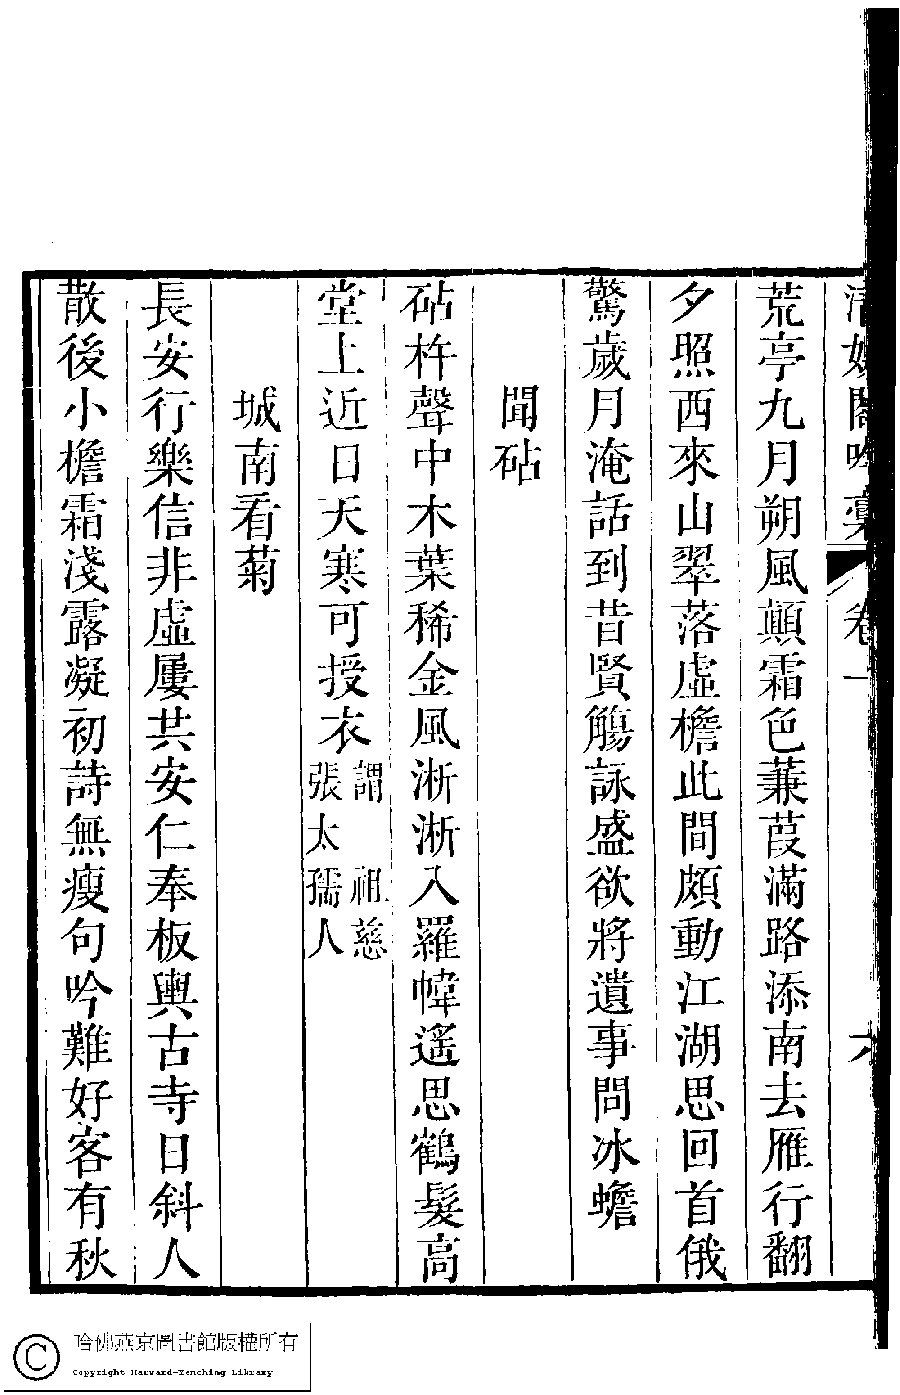 荒亭九月朔風顛霜色蒹葭滿路添南去雁行翻
夕照西來山翠落虛檐此間頗動江湖思回首俄
驚歲月淹話到昔賢觴詠盛欲將遺事問冰蟾
聞砧
砧杵聲中木葉稀金風淅淅入羅幃遙思鶴髮高
堂上近日天寒可授衣謂 祖慈
張太孺人
城南看菊
長安行樂信非虛屢共安仁奉板輿古寺日斜人
散後小檐霜淺露凝初詩無瘦句吟難好客有秋
哈佛燕京圖書館版權所有
Copyright Harvard-Yenching Library